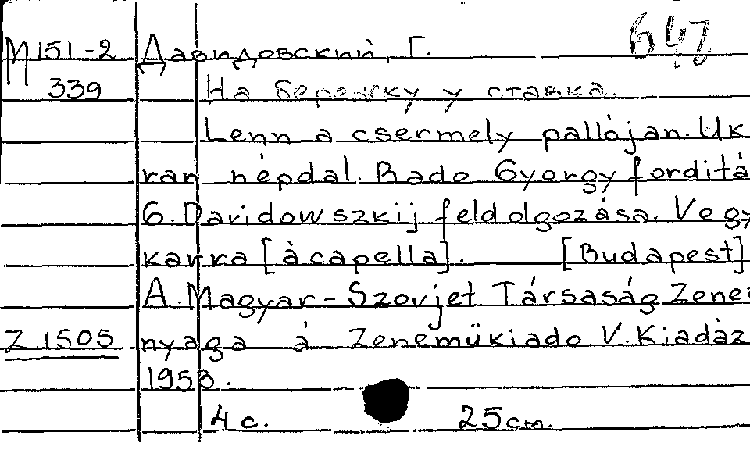 М 151-2 Давидовский, Г.
339 На бережку у ставка.
Lenn a csermely pallóján. Uk
ran népdal. Rado György fordítá
G. Davidowszkij feldolgozása. Vegy
karra [àcapella]. [Budapest]
A. Magyar-Szovjet Társaság Zene
Z 1505 nyaga á Zeneműkiado V. Kiadáz
1953.
4 с. 25 cm.